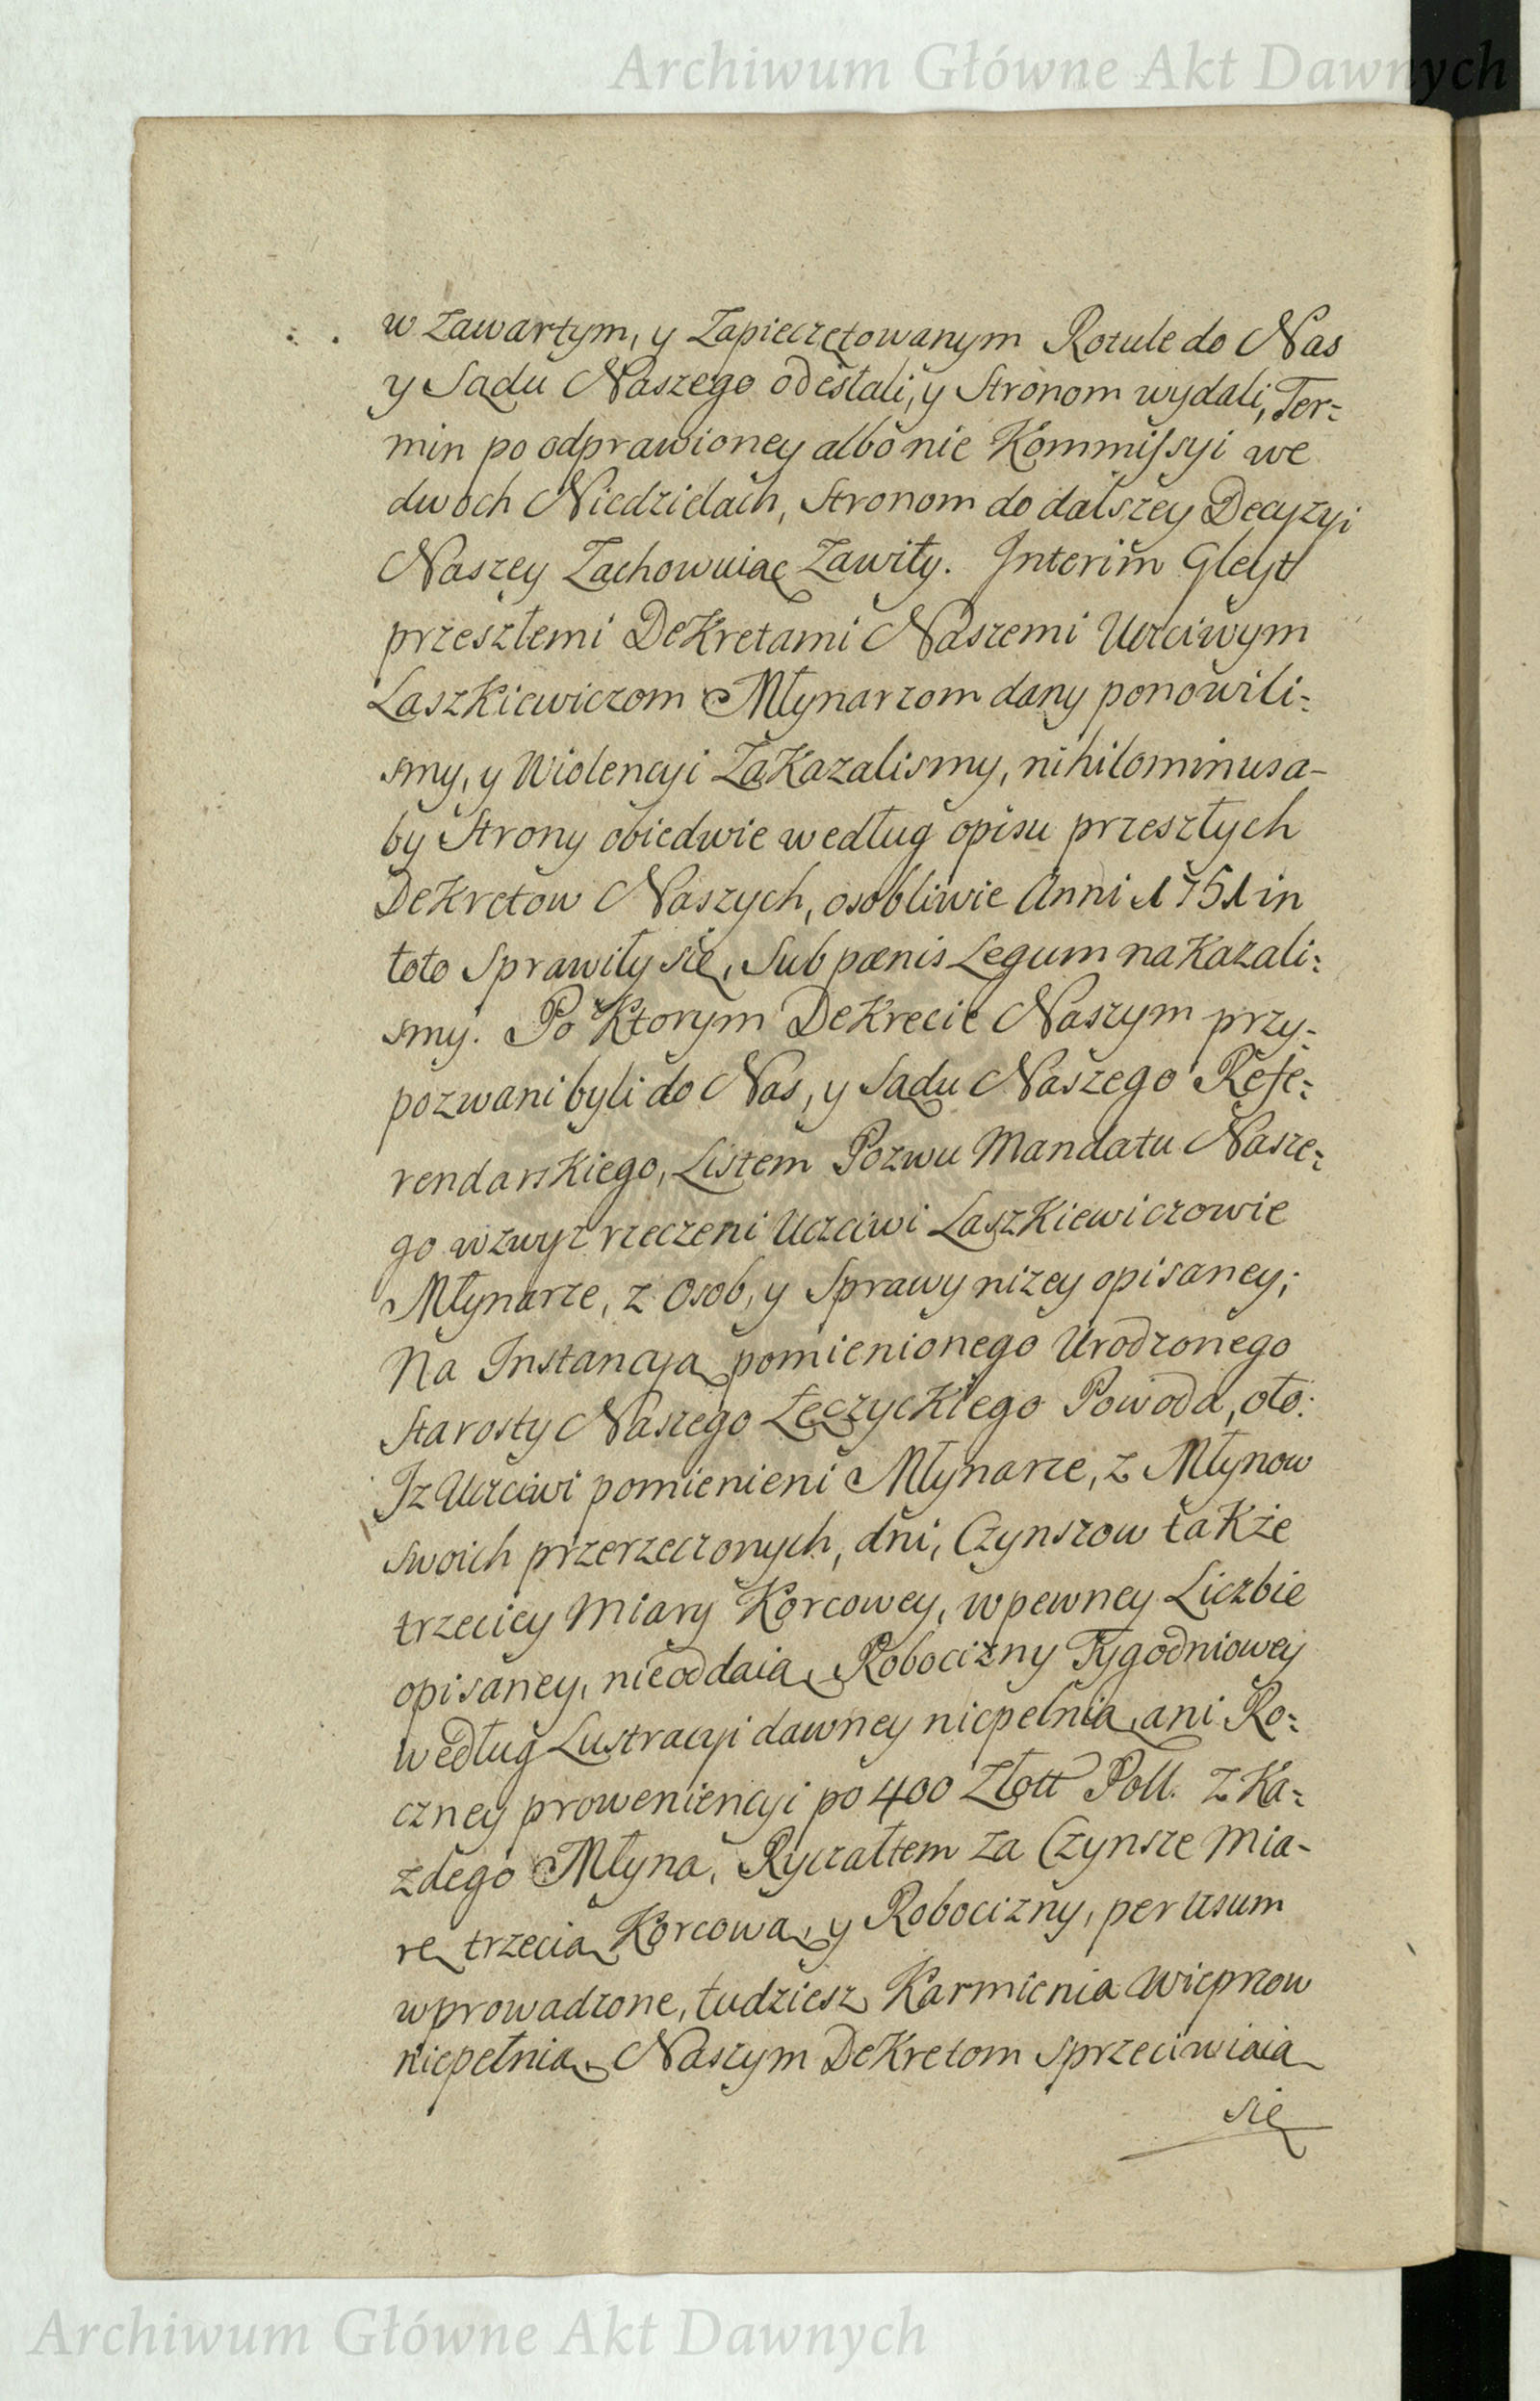 Archiwum Główne Akt Dawnych
w Zawartym, y Zapieczętowanym Rotule do Nas
y Sądu Naszego odesłali, y Stronom wydali, Ter:
min po odprawioney albo nie Kommissyi we
dwoch Niedzielach, Stronom do dalszey Decyzyi
Naszey Zachowuiąc Zawiły. Interim Gleyt
przeszłemi Dekretami Naszemi Uczciwym
Laszkiewiczom Młynarzom dany ponowili:
smy, y Wiolencyi Zakazalismy, nihilominus a-
by Strony obiedwie według opisu przeszłych
Dekretow Naszych, osobliwie Anni 1751 in
toto Sprawiły się, Sub pænis Legum nakazali:
smy. Po Ktorym Dekrecie Naszym przy:
pozwani byli do Nas, y Sądu Naszego Refe:
rendarskiego, Listem Pozwu Mandatu Nasze:
go wzwyz rzeczeni Uczciwi Laszkiewiczowie
Młynarze, z Osob, y Sprawy nizey opisaney;
Na Instancyą pomienionego Urodzonego
Starosty Naszego Łęczyckiego Powoda, oto:
Iz Uczciwi pomienieni Młynarze, z Młynow
swoich przerzeczonych, dni, Czynszow także
trzeciey Miary Korcowey, w pewney Liczbie
opisaney, nieoddaią, Robocizny Tygodniowey
według Lustracyi dawney niepełnią, ani Ro:
czney prowenienc­yi po 400 Złott Poll. z Ka:
zdego Młyna, Ryczałtem za Czynsze Mia-
rę trzecią Korcową, y Robocizny, per usum
wprowadzone, tudziesz Karmienia Wieprzow
niepełnią, Naszym Dekretom Sprzeciwiaią
się
Archiwum Główne Akt Dawnych